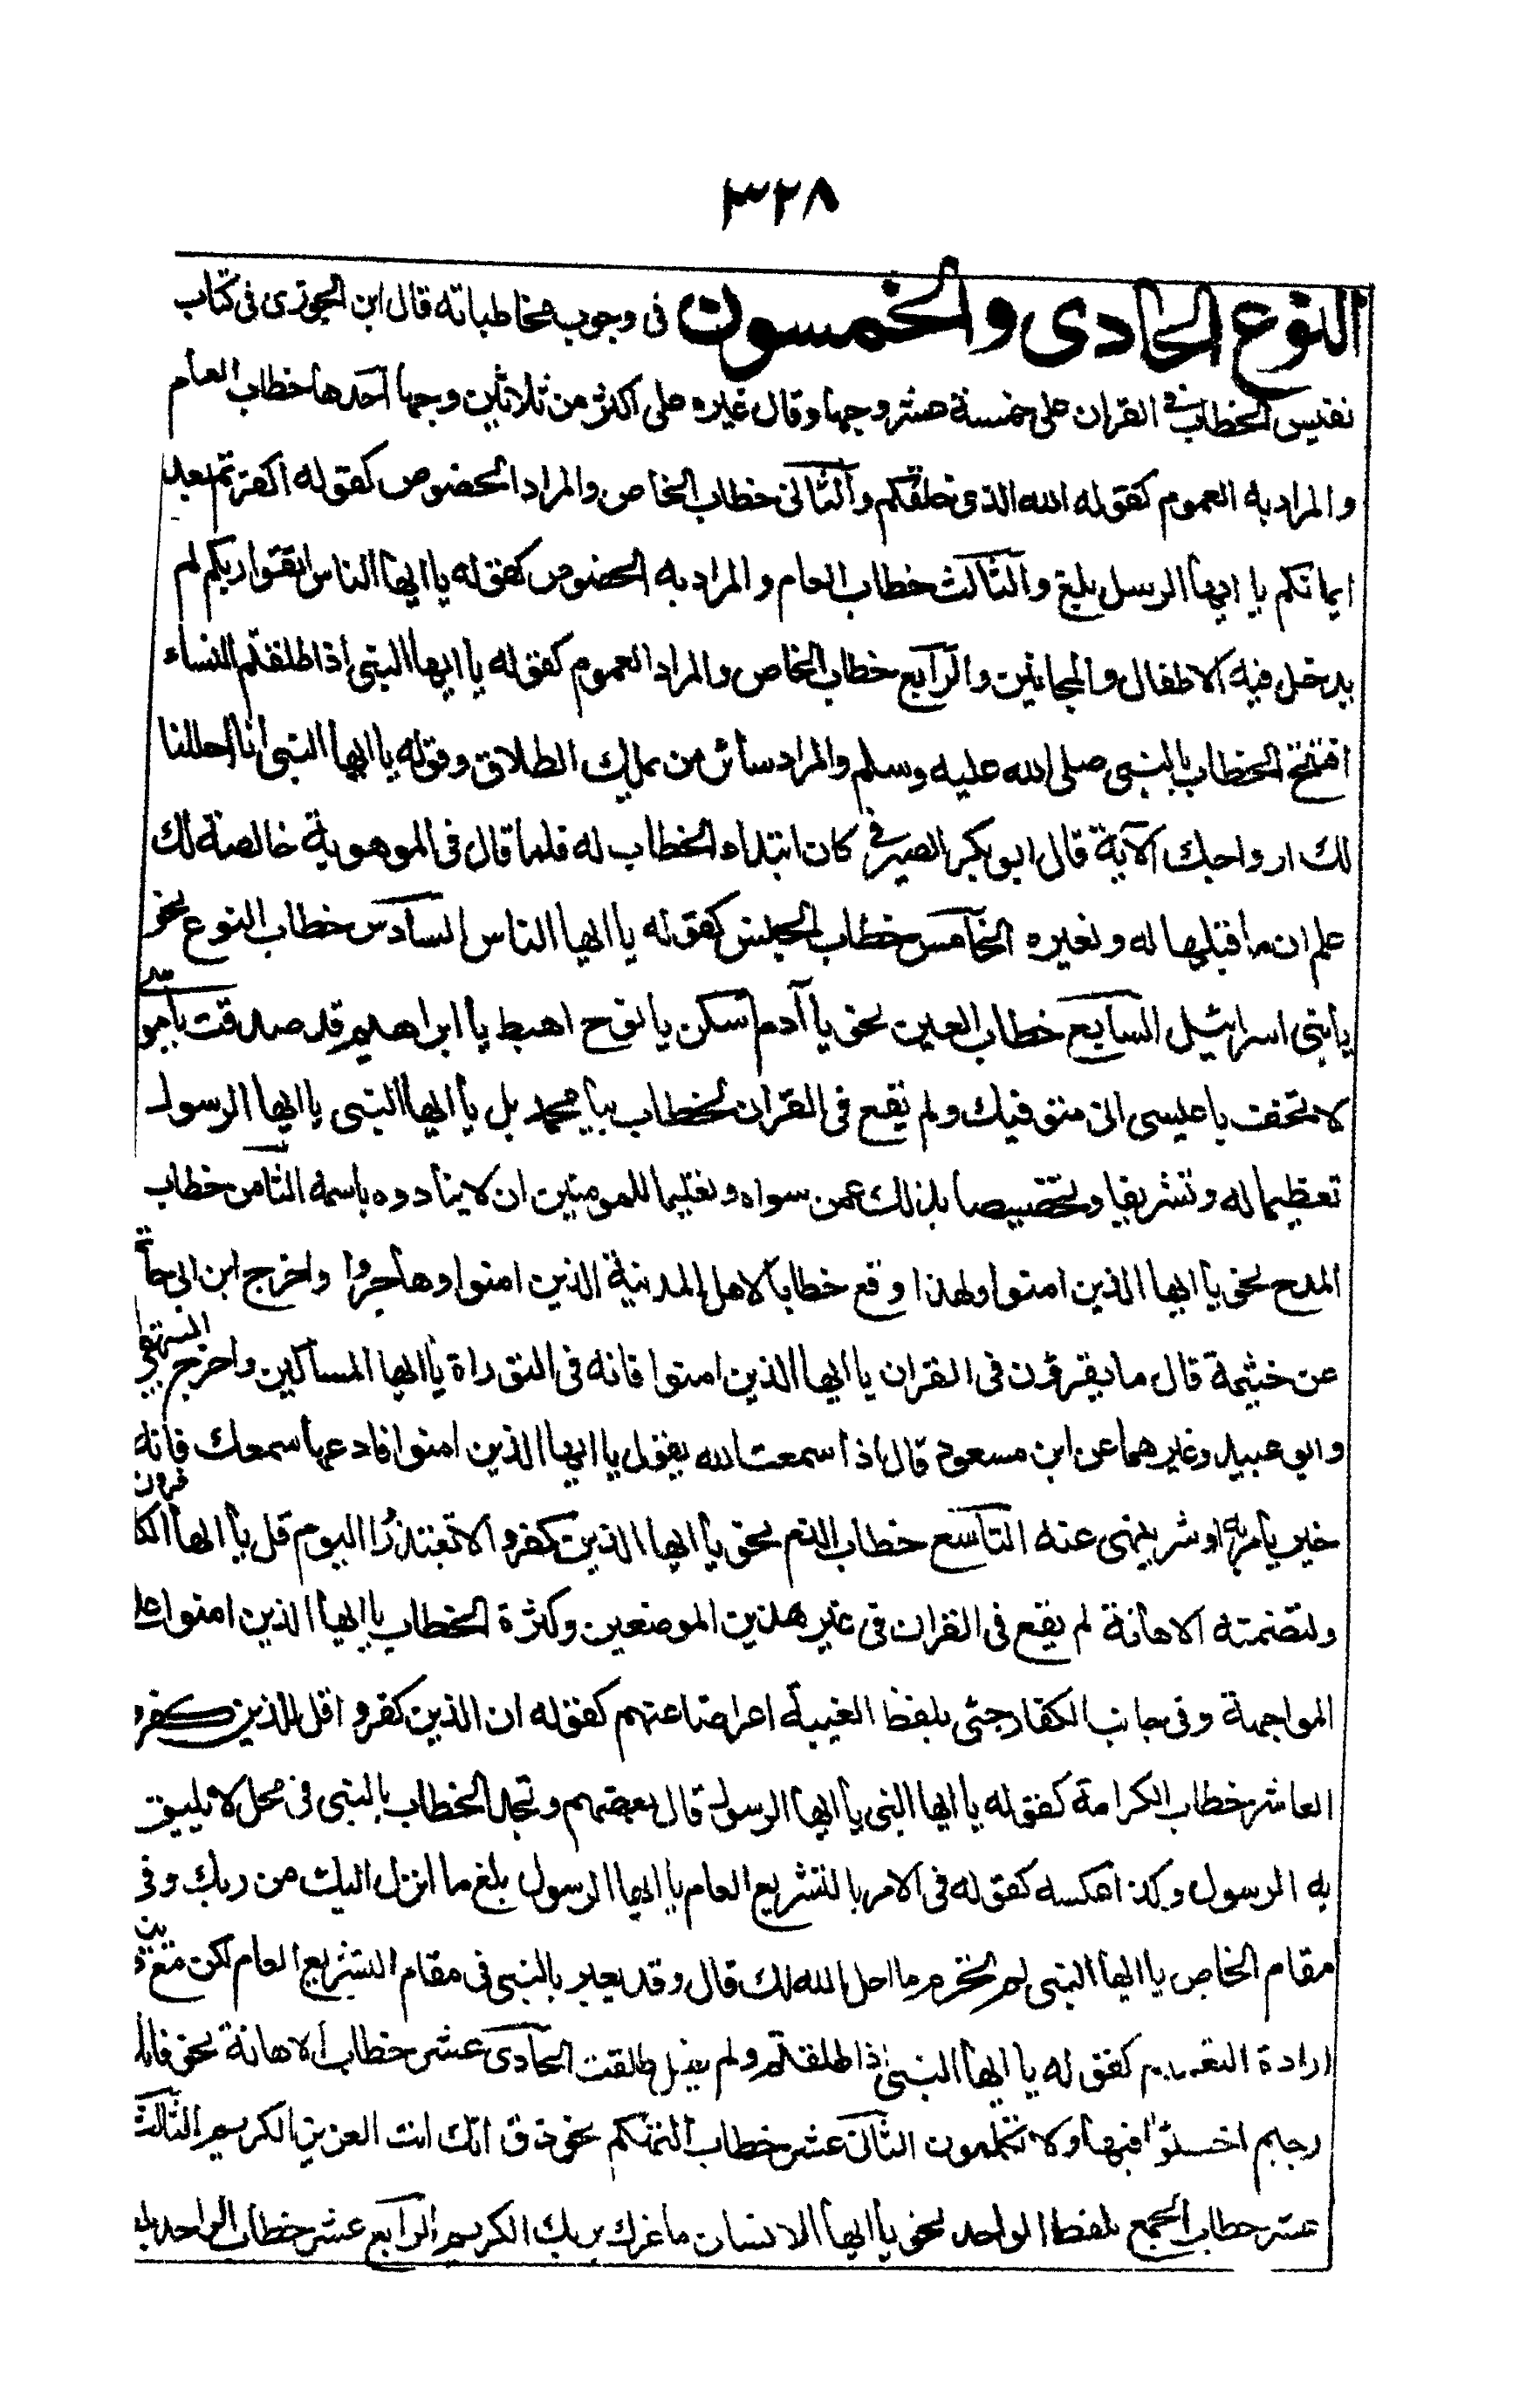 ٣٢٨
النوع الحادى والخمسون فى وجوب مخاطباته قال ابن الجوزى فى كتاب
نفيس الخطاب فى القران على خمسة عشر وجها وقال غيره على اكثر من ثلاثين وجها احدها خطاب العام
والمراد به العموم كقوله الله الذى خلقكم والثانى خطاب الخاص والمراد الخصوص كقوله اكفرتم بعد
ايمانكم يا ايها الرسل بلغ والثالث خطاب العام والمراد به الخصوص كقوله يا ايها الناس اتقوا ربكم لم
يدخل فيه الاطفال والمجانين والرابع خطاب الخاص والمراد العموم كقوله يا ايها النبى اذا طلقتم النساء
افتتح الخطاب بالنبى صلى الله عليه وسلم والمراد سائر من يملك الطلاق وقوله يا ايها النبى انا احللنا
لك ازواجك الآية قال ابو بكر الصيرفى كان ابتداء الخطاب له فلما قال فى الموهوبة خالصة لك
علم ان ما قبلها له ولغيره الخامس خطاب الجنس كقوله يا ايها الناس السادس خطاب النوع نحو
يا بنى اسرائيل السابع خطاب العين نحو يا آدم اسكن يا نوح اهبط يا ابراهيم قد صدقت يا موسى
لا تخف يا عيسى انى متوفيك ولم يقع فى القران الخطاب بيا محمد بل يا ايها النبى يا ايها الرسول
تعظيما له وتشريفا وتخصيصا بذلك عمن سواه وتعليما للمومنين ان لا ينادوه باسمه الثامن خطاب
المدح نحو يا ايها الذين امنوا ولهذا وقع خطابا لاهل المدينة الذين امنوا وهاجروا واخرج ابن ابى حاتم
عن خيثمة قال ما يقرؤن فى القران يا ايها الذين امنوا فانه فى التوراة يا ايها المساكين واخرج البيهقى
وابو عبيد وغيرهما عن ابن مسعود قال اذا سمعت الله يقول يا ايها الذين امنوا فارعها سمعك فانه
خير يأمر به او شر ينهى عنه التاسع خطاب الذم نحو يا ايها الذين كفروا لا تعتذروا اليوم قل يا ايها الكافرون
ولتضمنه الاهانة لم يقع فى القران فى غير هذين الموضعين وكثرة الخطاب يا ايها الذين امنوا على
المواجهة وفى جانب الكفار جئ بلفظ الغيبة اعراضا عنهم كقوله ان الذين كفروا قل للذين كفروا
العاشر خطاب الكرامة كقوله يا ايها النبى يا ايها الرسول قال بعضهم وتجد الخطاب بالنبى فى محل لا يليق
به الرسول وكذا عكسه كقوله فى الامر بالتشريع العام يا ايها الرسول بلغ ما انزل اليك من ربك وفى
مقام الخاص يا ايها النبى لم تحرم ما احل الله لك قال وقد يعبر بالنبى فى مقام التشريع العام لكن مع قرينة
ارادة كقوله يا ايها النبى اذا طلقتم ولم يقل طلقت الحادى عشر خطاب الاهانة نحو فانك
رجيم اخسئوا فيها ولا تكلمون الثانى عشر خطاب التهكم نحو ذق انك انت العزيز الكريم الثالث
عشر خطاب الجمع بلفظ الواحد نحو يا ايها الانسان ما غرك بربك الكريم الرابع عشر خطاب الواحد